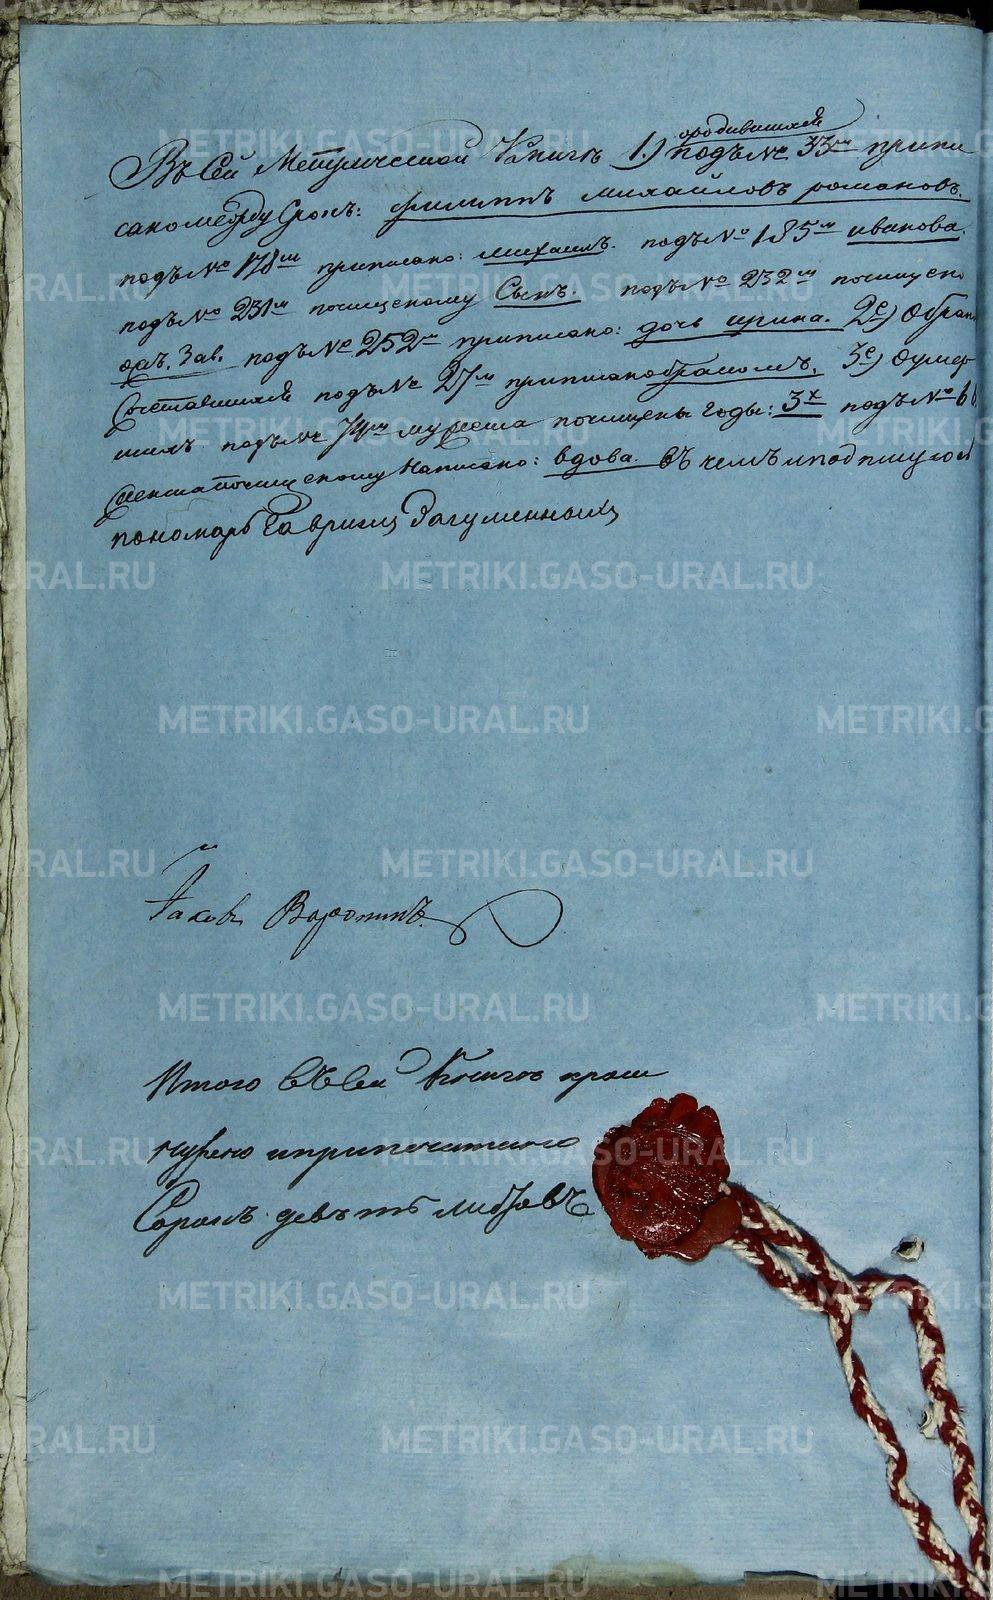 ородившихся
Въ сей Метрической Книге 1.) подъ № 33м припи
сано между строкъ: филиппъ михайловъ романовъ.
подъ № 178м приписано: михаилъ. подъ № 185м иванова.
подъ № 231м почищеному Сынъ. подъ № 232м почищено
Зав. подъ № 252м приписано: дочь ирина. 2е) Обрако
Сочетавшихся подъ № 27м приписано бракомъ. 3е) Оумер
шихъ подъ № 74м мужеска почищены годы: 3х подъ № 66.
женска почищеному написано: вдова. въ чемъ и подписуюся
пономарь Гавриил Загуменных
Iаковъ Воронинъ.
Итого въ сей Книге прош
нурено и припечатано
Сорокъ девять листовъ
METRIKI.GASO-URAL.RU